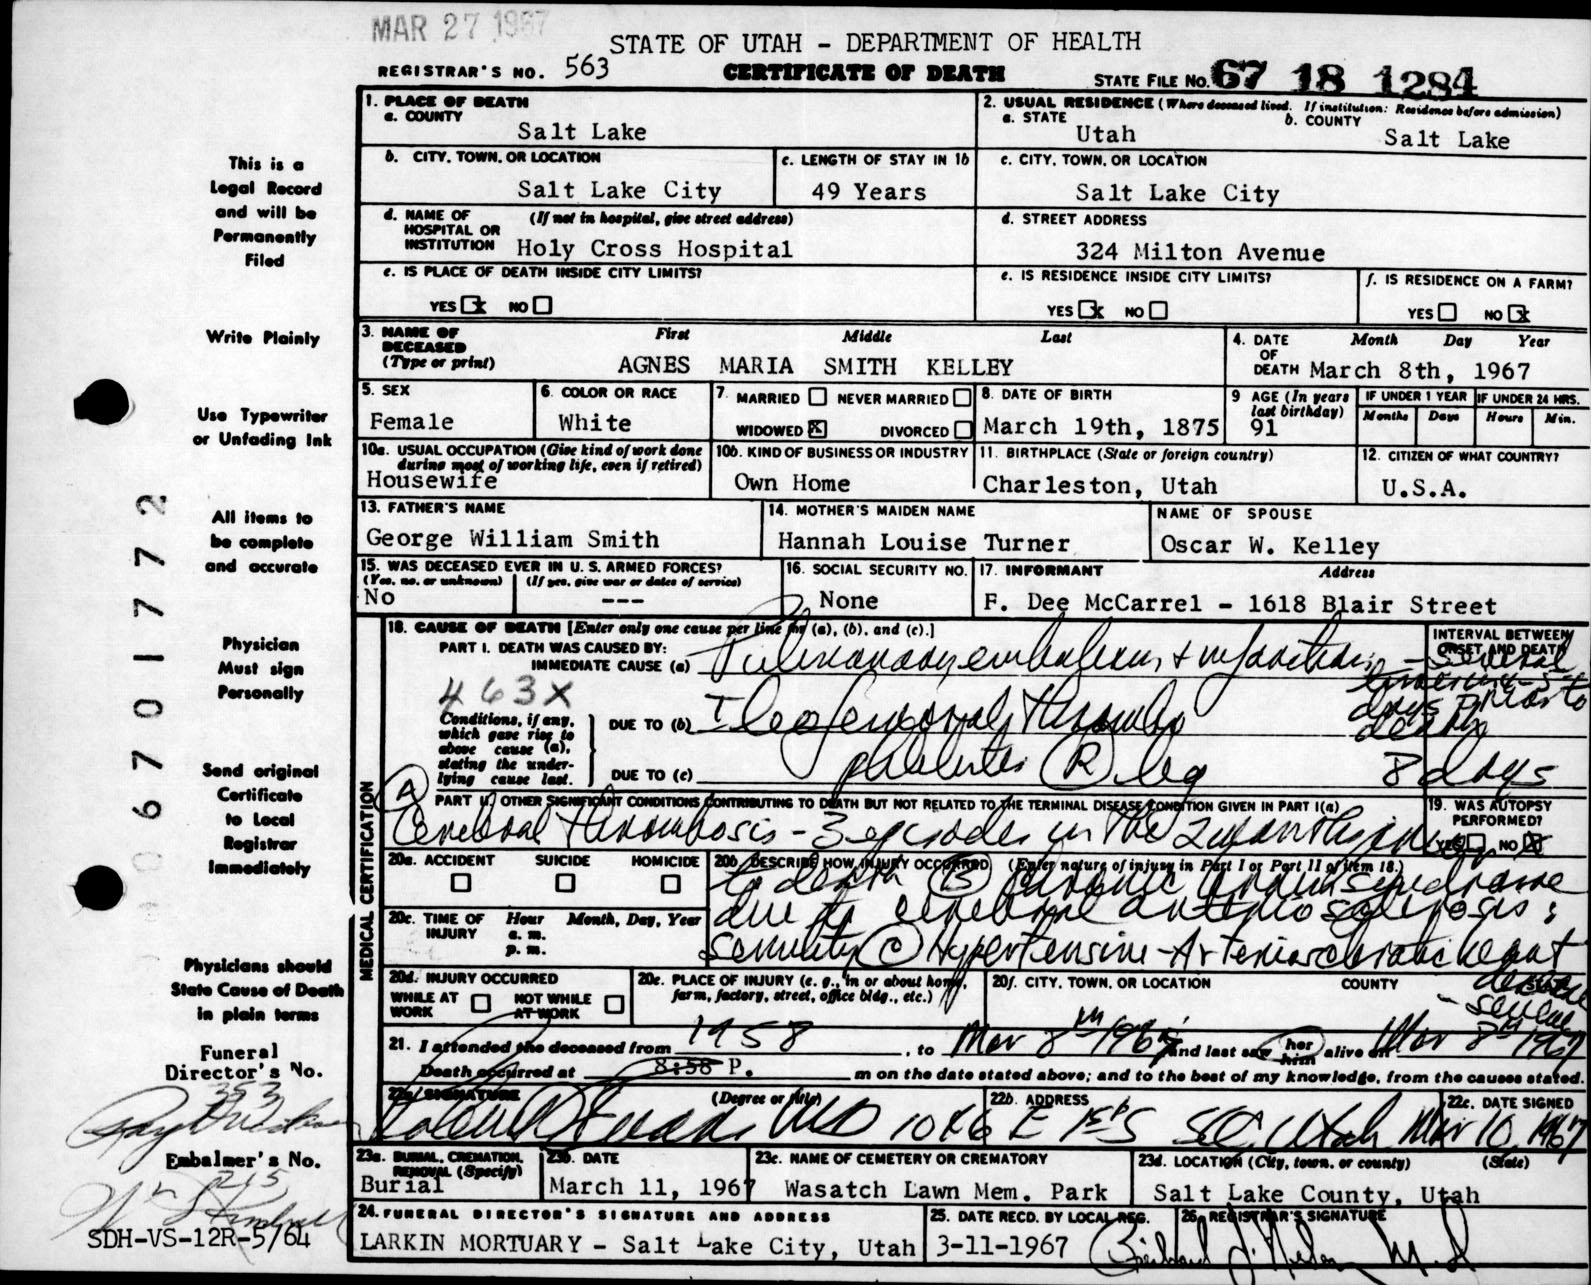 MAR 27 1967
STATE OF UTAH - DEPARTMENT OF HEALTH
REGISTRAR'S NO. 563
CERTIFICATE OF DEATH
STATE FILE NO. 67 18 1284
This is a
Legal Record
and will be
Permanently
Filed
Write Plainly
Use Typewriter
or Unfading Ink
All items to
be complete
and accurate
Physician
Must sign
Personally
Send original
Certificate
to Local
Registrar
Immediately
Physicians should
State Cause of Death
in plain terms
Funeral
Director's No.
353
Embalmer's No.
215
SDH-VS-12R-5/64
06701772
1. PLACE OF DEATH
a. COUNTY
Salt Lake
2. USUAL RESIDENCE (Where deceased lived. If institution: Residence before admission)
a. STATE
Utah
b. COUNTY
Salt Lake
b. CITY, TOWN, OR LOCATION
Salt Lake City
c. LENGTH OF STAY IN 1b
49 Years
c. CITY, TOWN, OR LOCATION
Salt Lake City
d. NAME OF HOSPITAL OR INSTITUTION (If not in hospital, give street address)
Holy Cross Hospital
d. STREET ADDRESS
324 Milton Avenue
e. IS PLACE OF DEATH INSIDE CITY LIMITS?
YES X NO
e. IS RESIDENCE INSIDE CITY LIMITS?
YES X NO
f. IS RESIDENCE ON A FARM?
YES NO X
3. NAME OF DECEASED (Type or print)
First Middle Last
AGNES MARIA SMITH KELLEY
4. DATE OF DEATH Month Day Year
March 8th, 1967
5. SEX
Female
6. COLOR OR RACE
White
7. MARRIED NEVER MARRIED
WIDOWED X DIVORCED
8. DATE OF BIRTH
March 19th, 1875
9 AGE (In years last birthday)
91
IF UNDER 1 YEAR
Months Days
IF UNDER 24 HRS.
Hours Min.
10a. USUAL OCCUPATION (Give kind of work done during most of working life, even if retired)
Housewife
10b. KIND OF BUSINESS OR INDUSTRY
Own Home
11. BIRTHPLACE (State or foreign country)
Charleston, Utah
12. CITIZEN OF WHAT COUNTRY?
U.S.A.
13. FATHER'S NAME
George William Smith
14. MOTHER'S MAIDEN NAME
Hannah Louise Turner
NAME OF SPOUSE
Oscar W. Kelley
15. WAS DECEASED EVER IN U. S. ARMED FORCES?
(Yes, no, or unknown) (If yes, give war or dates of service)
No ---
16. SOCIAL SECURITY NO.
None
17. INFORMANT Address
F. Dee McCarrel - 1618 Blair Street
MEDICAL CERTIFICATION
18. CAUSE OF DEATH [Enter only one cause per line for (a), (b), and (c).]
PART I. DEATH WAS CAUSED BY:
IMMEDIATE CAUSE (a) Pulmonary embolism + infarction - several
INTERVAL BETWEEN ONSET AND DEATH
days prior to
death
463X
Conditions, if any,
which gave rise to
above cause (a),
stating the under-
lying cause last.
DUE TO (b) Ileofemoral thrombo
DUE TO (c) phlebitis (R) leg 8 days
PART II. OTHER SIGNIFICANT CONDITIONS CONTRIBUTING TO DEATH BUT NOT RELATED TO THE TERMINAL DISEASE CONDITION GIVEN IN PART I(a)
(A) Cerebral thrombosis - 3 episodes in the 2 months prior
19. WAS AUTOPSY PERFORMED?
YES NO X
20a. ACCIDENT SUICIDE HOMICIDE
20b. DESCRIBE HOW INJURY OCCURRED (Enter nature of injury in Part I or Part II of item 18.)
to death (B) chronic brain syndrome
due to cerebral arteriosclerosis;
senility (C) Hypertensive-Arteriosclerotic heart
disease
- severe
20c. TIME OF INJURY Hour Month, Day, Year
a. m.
p. m.
20d. INJURY OCCURRED
WHILE AT WORK NOT WHILE AT WORK
20e. PLACE OF INJURY (e. g., in or about home, farm, factory, street, office bldg., etc.)
20f. CITY, TOWN, OR LOCATION COUNTY
21. I attended the deceased from 1958, to Mar 8th 1967 and last saw her him alive on Mar 8th 1967
Death occurred at 8:58 P. m on the date stated above; and to the best of my knowledge, from the causes stated.
22a. SIGNATURE (Degree or title)
MD
22b. ADDRESS
1046 E 1st S SLC, Utah
22c. DATE SIGNED
Mar 10, 1967
23a. BURIAL, CREMATION, REMOVAL (Specify)
Burial
23b. DATE
March 11, 1967
23c. NAME OF CEMETERY OR CREMATORY
Wasatch Lawn Mem. Park
23d. LOCATION (City, town, or county) (State)
Salt Lake County, Utah
24. FUNERAL DIRECTOR'S SIGNATURE AND ADDRESS
LARKIN MORTUARY - Salt Lake City, Utah
25. DATE RECD. BY LOCAL REG.
3-11-1967
26. REGISTRAR'S SIGNATURE